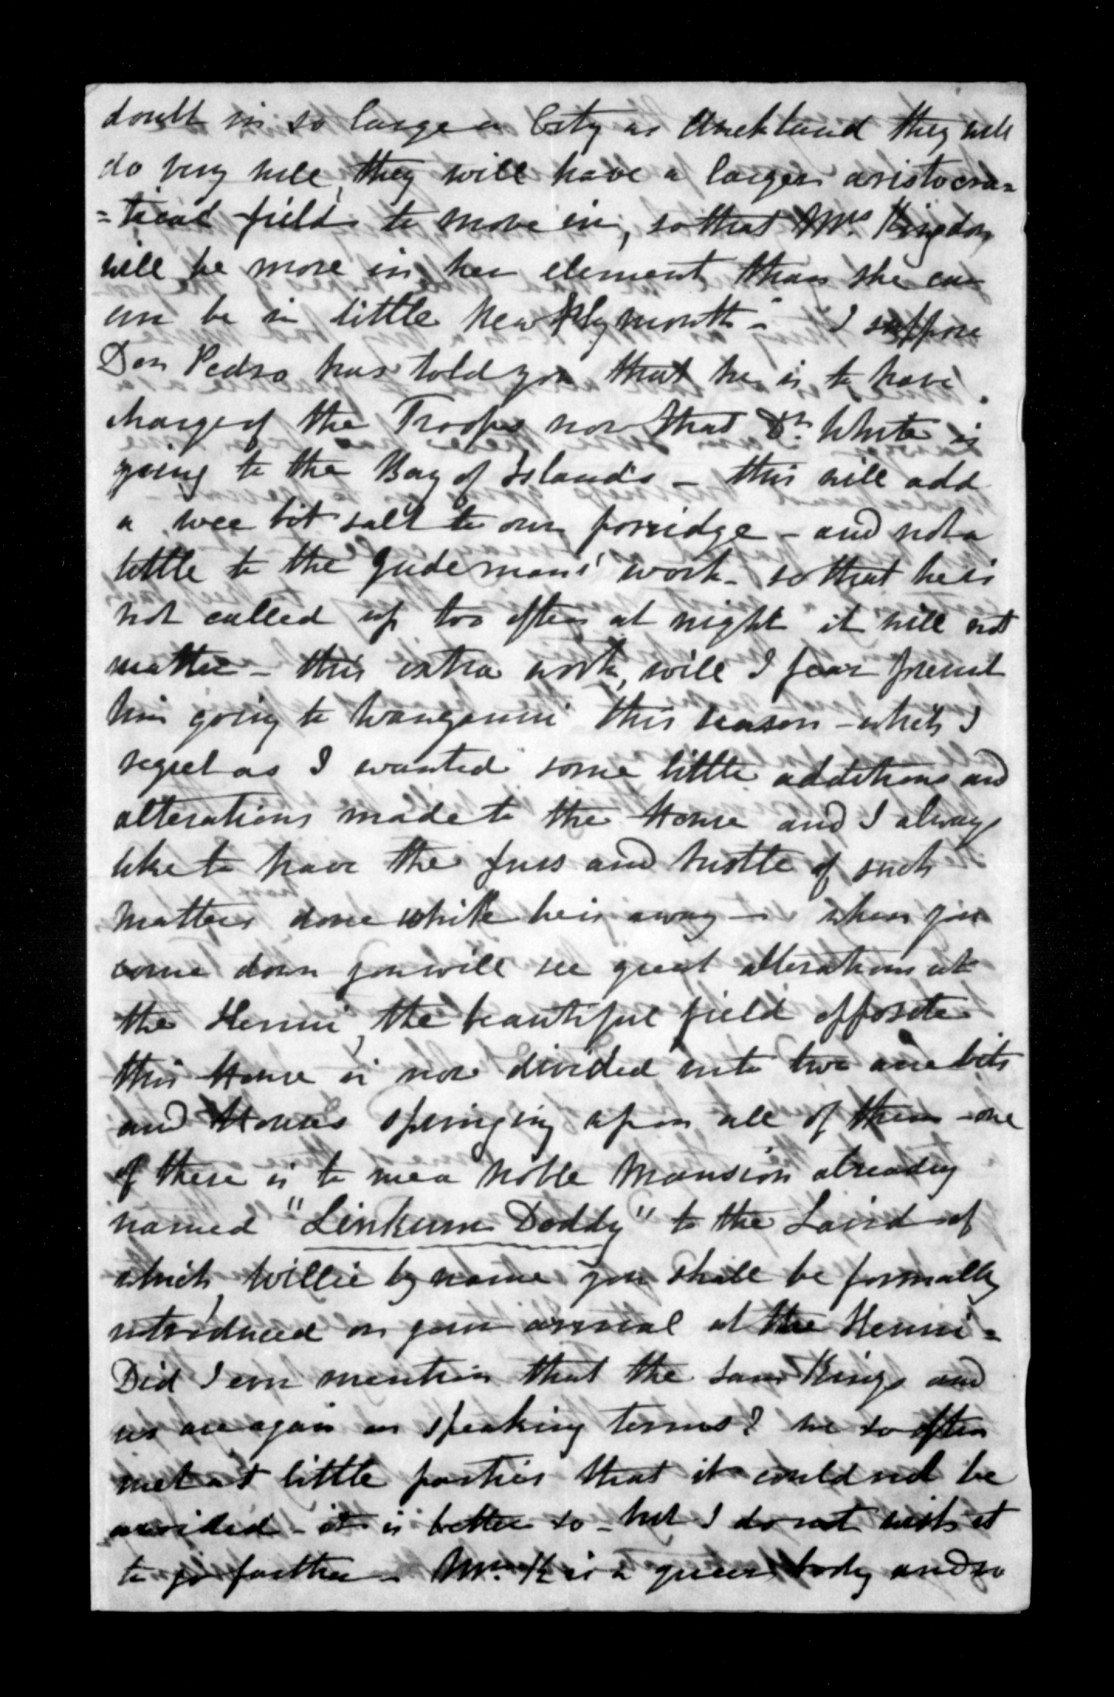 doubt in so large a City as Auckland they will
do very well, they will have a larger aristocra=
=tical field to move in, so that Mrs Kingdon
will be more in her element than she can
ever be in little New Plymouth - I suppose
Don Pedro has told you that he is to have
charge of the Troops now that Dr. White is
going to the Bay of Islands - this will add
a wee bit salt to our porridge - and not a
little to the Gudeman's work - so that he is
not called up too often at night it will not
matter - this extra work, will I fear prevent
him going to Wanganui this season - which I
regret as I wanted some little additions and
alterations made to the House and I always
like to have the fuss and bustle of such
matters done while he is away - when you
come down you will see great alterations at
the Henui, the beautiful field opposite
this House is now divided into two acre bits
and Houses springing up on all of them - one
of these is to me a Noble Mansion already
named "Linkum Doddy" to the Laird of
which, Willie by name you shall be formally
introduced on your arrival at the Henui -
Did I ever mention that the Kings and
us are again on speaking terms? we so often
met at little parties that it could not be
avoided - it is better so - but I do not wish it
to go farther - Mrs. K is a queer body and so